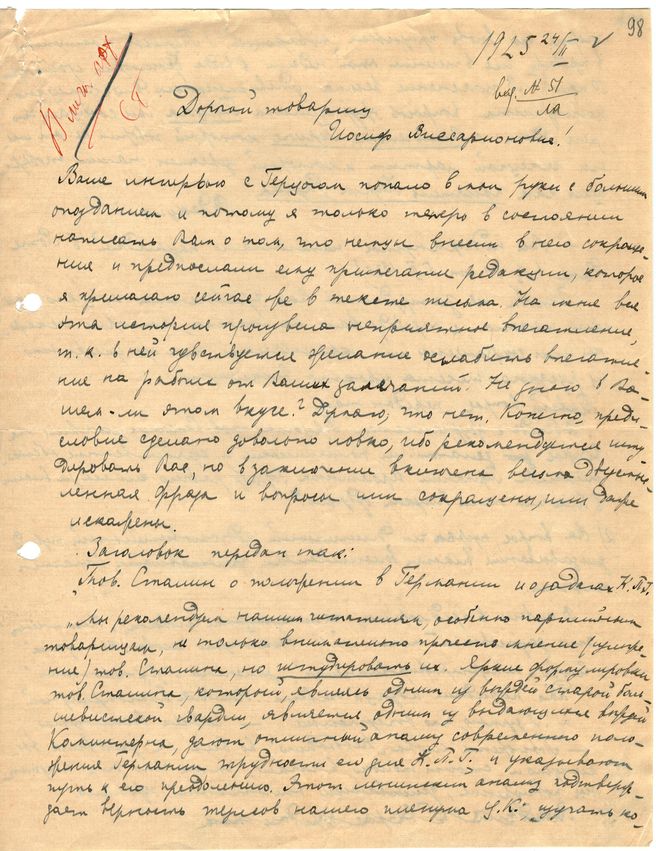 98
1925 24/II
В лич. арх
вход. № 51
Дорогой товарищ
Иосиф Виссарионович!
Ваше интервью с Герцогом попало в мои руки с большим
опозданием и потому я только теперь в состоянии
написать Вам о том, что немцы внесли в него сокраще-
ния и предпослали ему примечание редакции, которое
я прилагаю сейчас же в тексте письма. На меня вся
эта история произвела неприятное впечатление,
т.к. в ней чувствуется желание ослабить впечатле-
ние на рабочих от Ваших замечаний. Не знаю в Ва-
шем-ли этом вкусе? Думаю, что нет. Конечно, преди-
словие сделано довольно ловко, ибо рекомендуется шту-
дировать Вас, но в заключение включена весьма двусмыс-
ленная фраза и вопросы или сокращены, или даже
искажены.
Заголовок передан так:
"Тов. Сталин о положении в Германии и о задачах К.П.Г.
"Мы рекомендуем нашим читателям, особенно партийным
товарищам, не только внимательно прочесть мнение
тов. Сталина, но штудировать их. Яркие формулировки
тов. Сталина, который, являясь одним из вождей старой боль-
шевистской гвардии, является одним из выдающихся вождей
Коминтерна, дают отличный анализ современного поло-
жения Германии трудности его для К.П.Г. и указывают
путь к его преодолению. Этот ленинский анализ подтверж-
дает верность тезисов нашего пленума Ц.К.; изучать ко-